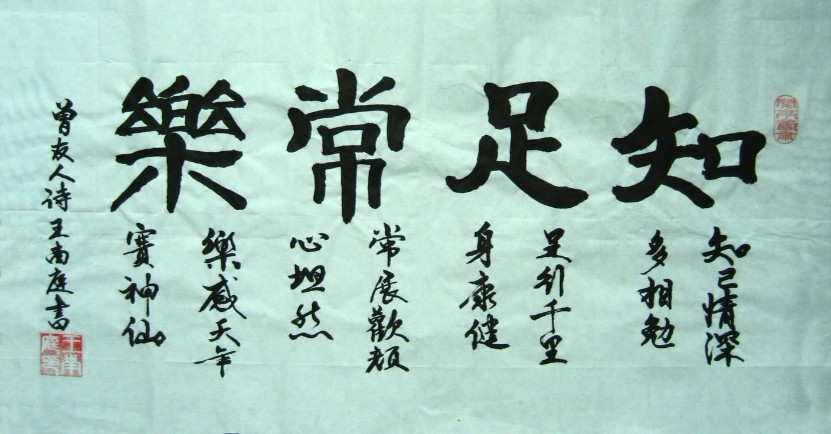 知足常樂
知己情深
多相勉
足行千里
身康健
常展歡顏
心坦然
樂感天年
賽神仙
曾友人诗王南庭書